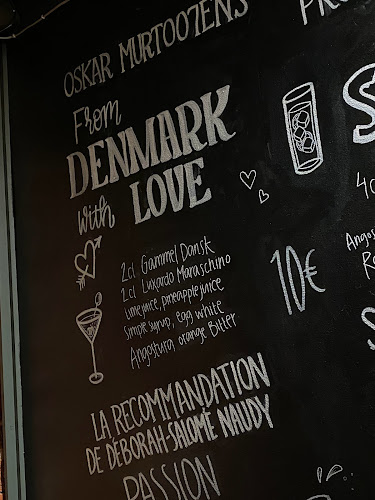 OSKAR MURTOOTENS
From
DENMARK
with LOVE
2cl Gammel Dansk
2cl Luxardo Maraschino
Lime juice, pineapple juice
Simple syrup, egg white
Angostura, orange Bitter
10€
LA RECOMMANDATION
DE DÉBORAH-SALOMÉ NAUDY
PASSION